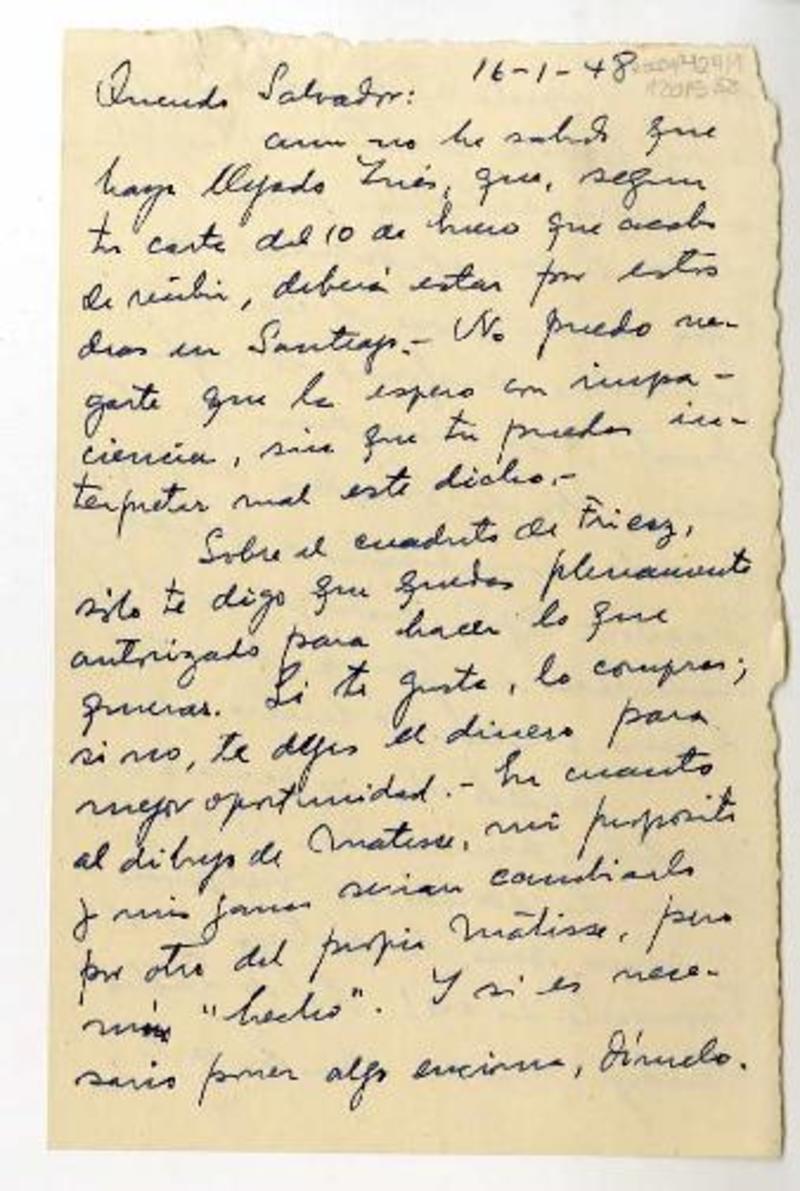 16-1-48
Querido Salvador:
aun no he sabido que
haya llegado Inés, que, segun
tu carta del 10 de Enero que acabo
de recibir, deberá estar por estos
dias en Santiago.- No puedo ne-
garte que la espero con impa-
ciencia, sin que tu puedas in-
terpretar mal este dicho.-
Sobre el cuadrito de Friesz,
sólo te digo que quedas plenamente
autorizado para hacer lo que
quieras. Si te gusta, lo compras;
si no, te dejas el dinero para
mejor oportunidad.- En cuanto
al dibujo de Matisse, mi proposito
y mis ganas serian cambiarlo
por otro del propio Mátisse, pero
más "hecho". Y si es nece-
sario poner algo encima, dímelo.